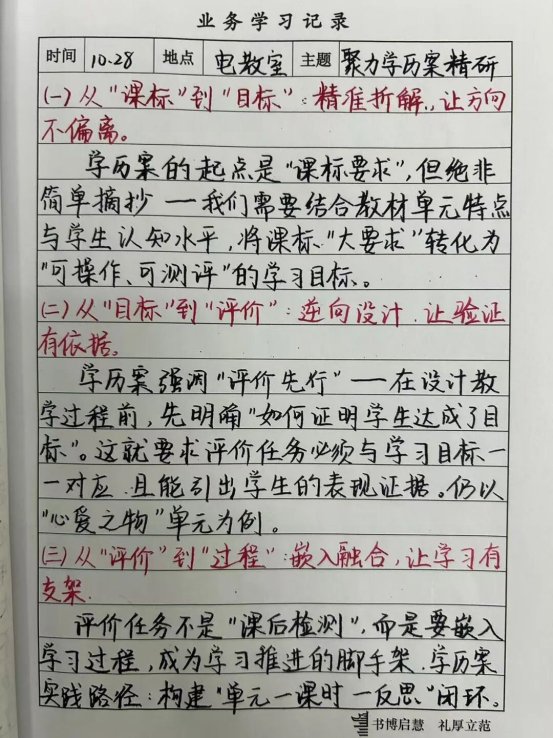 业务学习记录
时间 10.28 地点 电教室 主题 聚力学历案精研
(一)从"课标"到"目标":精准拆解,让方向
不偏离。
学历案的起点是"课标要求",但绝非
简单摘抄——我们需要结合教材单元特点
与学生认知水平,将课标"大要求"转化为
"可操作、可测评"的学习目标。
(二)从"目标"到"评价":逆向设计,让验证
有依据。
学历案强调"评价先行"——在设计教
学过程前,先明确"如何证明学生达成了目
标"。这就要求评价任务必须与学习目标一
一对应,且能引出学生的表现证据。仍以
"心爱之物"单元为例。
(三)从"评价"到"过程":嵌入融合,让学习有
支架.
评价任务不是"课后检测",而是要嵌入
学习过程,成为学习推进的脚手架.学历案
实践路径:构建"单元—课时—反思"闭环。
书博启慧 礼厚立范